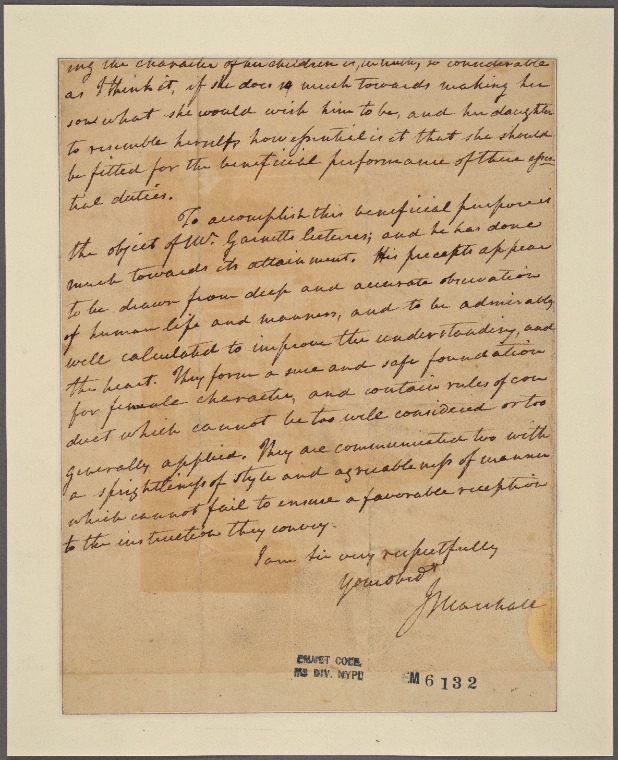 ing the character of her children is, in truth, so considerable
as I think it, if she does so much towards making her
sons what she would wish him to be, and her daughter
to resemble herself, how essential is it that she should
be fitted for the beneficial performance of these essen
tial duties.
To accomplish this beneficial purpose is
the object of Mr. Garnetts lectures; and he has done
much towards its attainment. His precepts appear
to be drawn from deep and accurate observation
of human life and manners, and to be admirably
well calculated to improve the understanding, and
the heart. They form a sure and safe foundation
for female character, and contain rules of con
duct which cannot be too well considered or too
generally applied. They are communicated too with
a sprightliness of style and agreeableness of manner
which cannot fail to ensure a favorable reception
to the instruction they convey.
I am Sir very respectfully
Your obedt
J Marshall
EMMET COLL.
MS DIV. NYPL
EM 6132